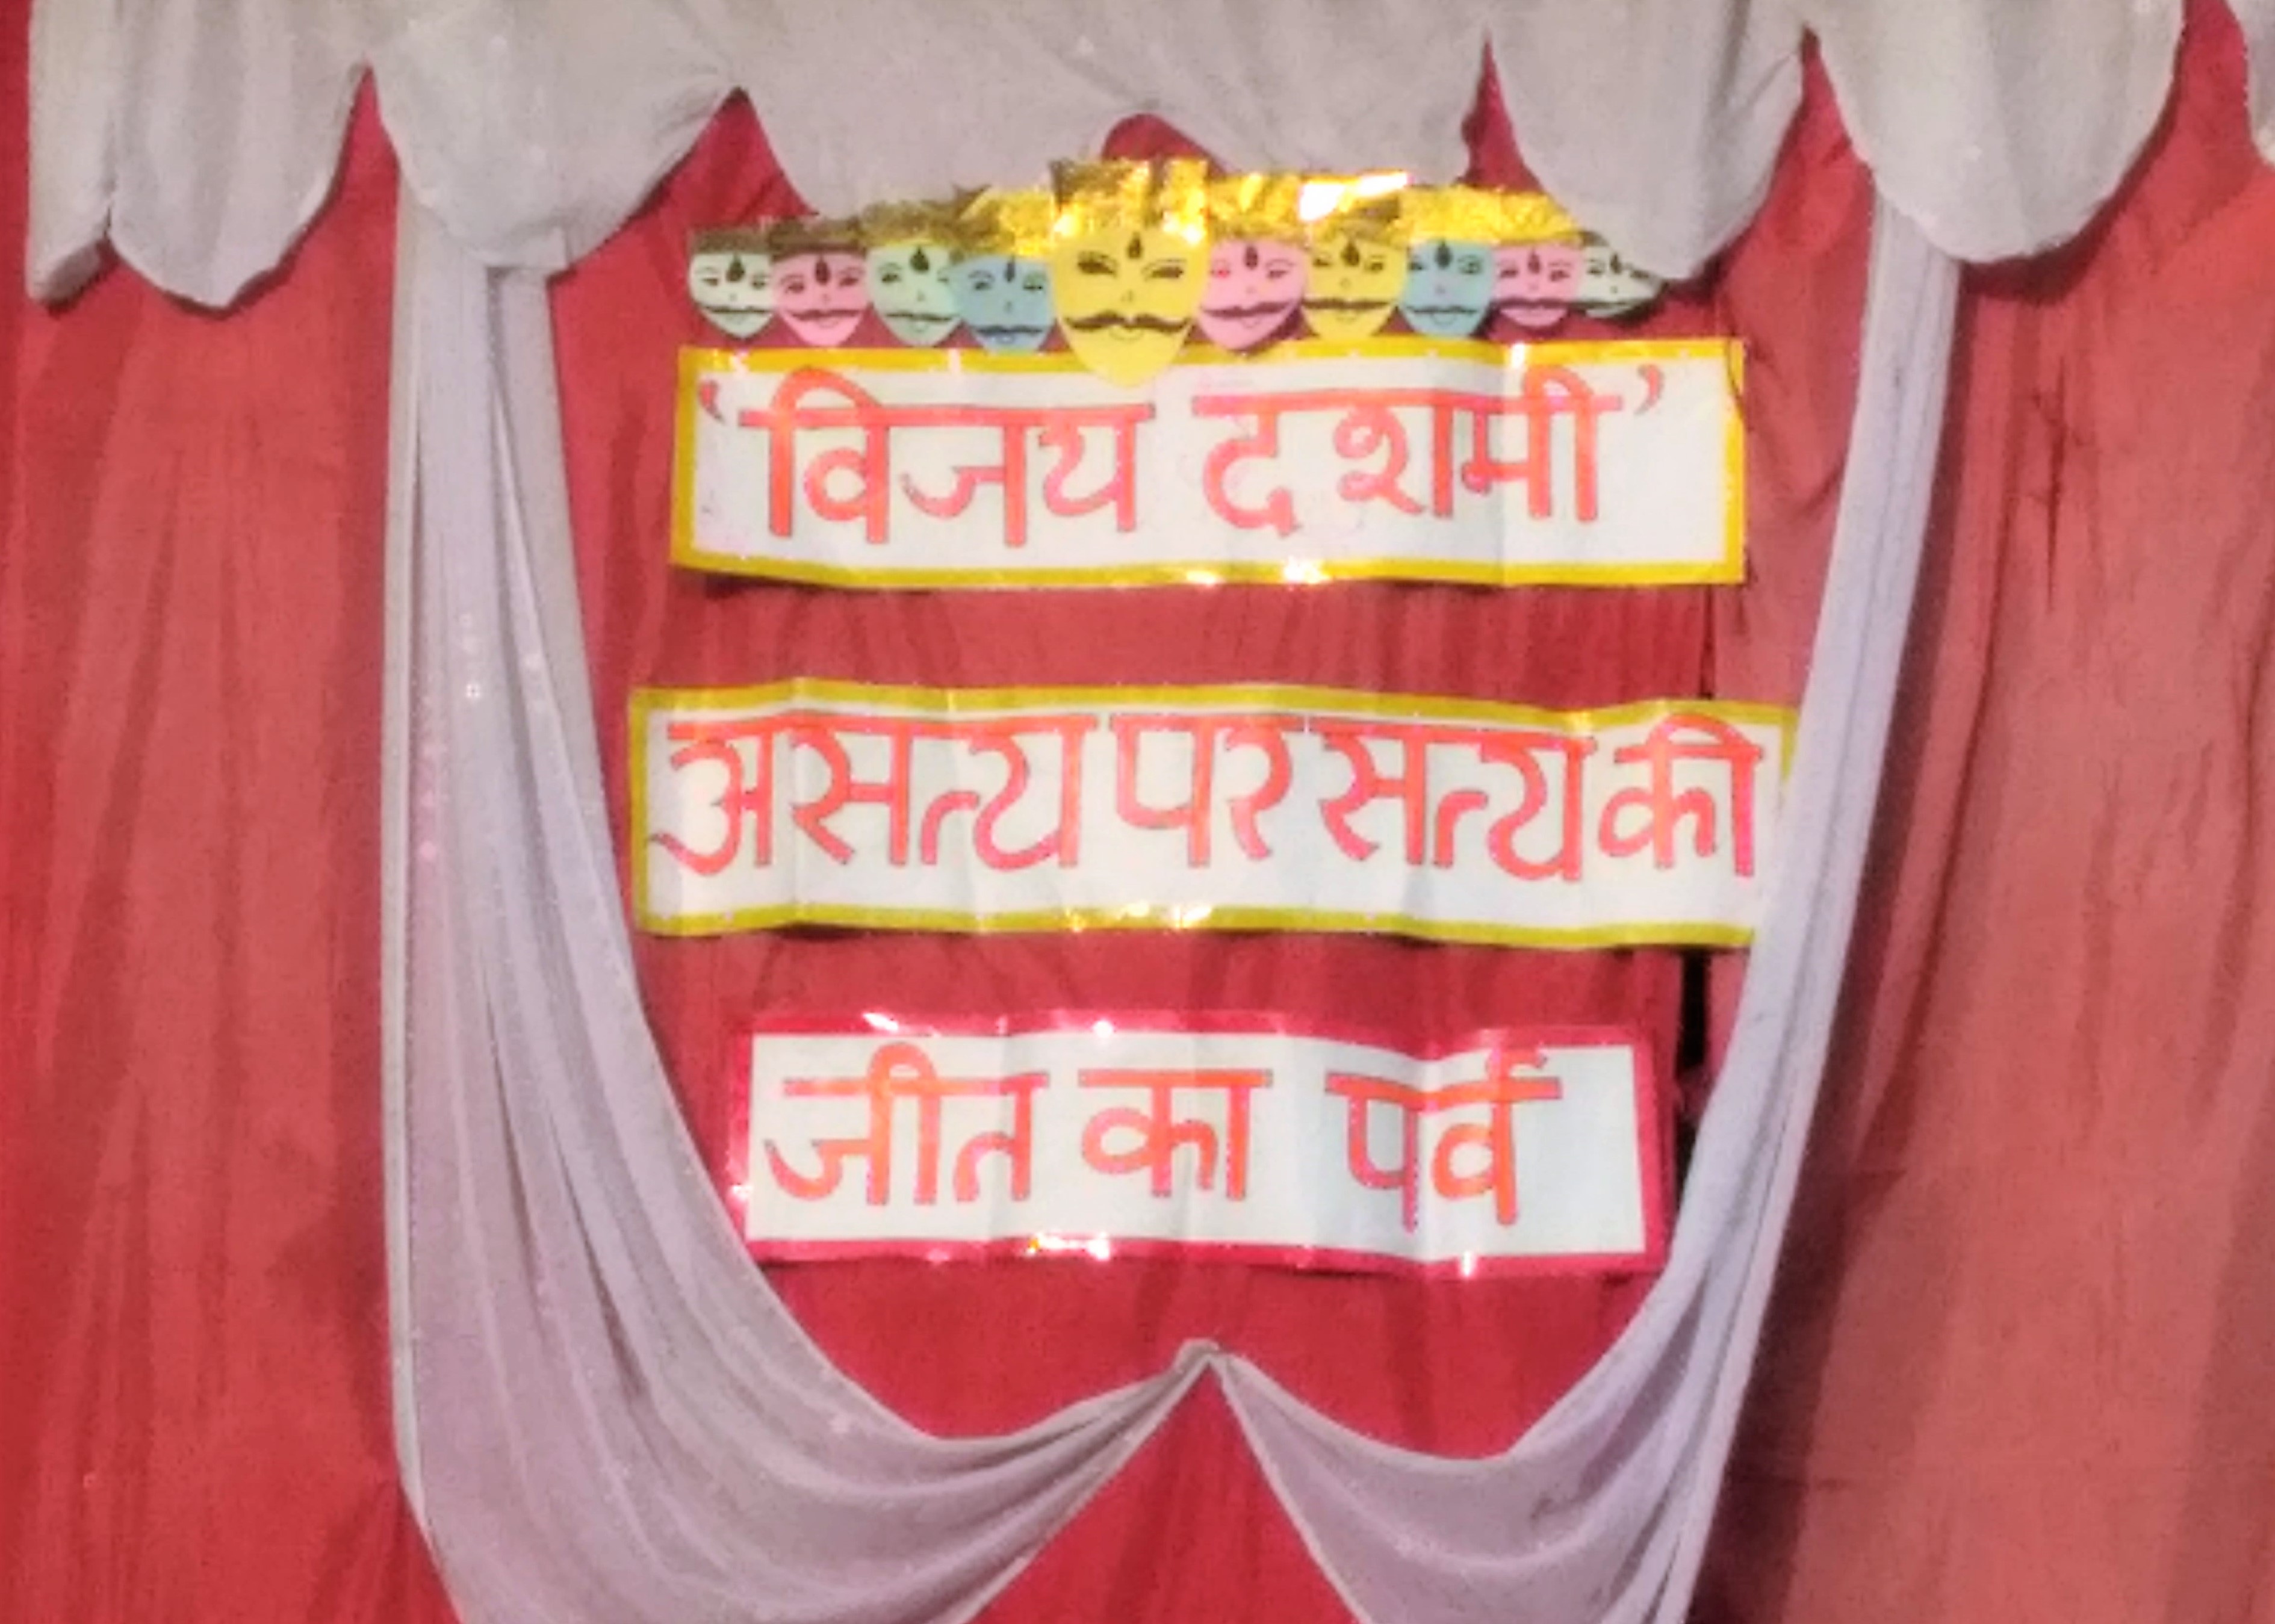 'विजय दशमी'
असत्य पर सत्य की
जीत का पर्व